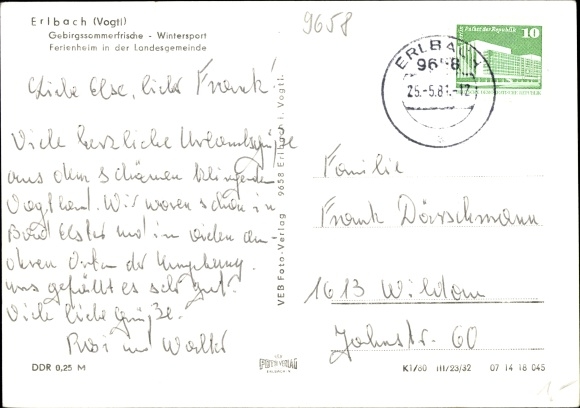 Erlbach (Vogtl)
Gebirgssommerfrische - Wintersport
Ferienheim in der Landesgemeinde
9658
Liebe Else, lieber Frank!
Viele herzliche Urlaubsgrüße
aus dem schönen klingenden
Vogtland. Wir waren schon in
Bad Elster und in vielen an-
deren Orten der Umgebung.
uns gefällt es sehr gut.
Viele liebe Grüße.
Rosi und Walter
DDR 0,25 M
VEB Foto-Verlag 9658 Erlbach i. Vogtl.
VEB
FOTO-VERLAG
ERLBACH
ERLBACH
9658
25.-5.81.-12
Palast der Republik
10
Familie
Frank Dörschmann
1613 Wildau
Jahnstr. 60
K1/80 III/23/32 07 14 18 045